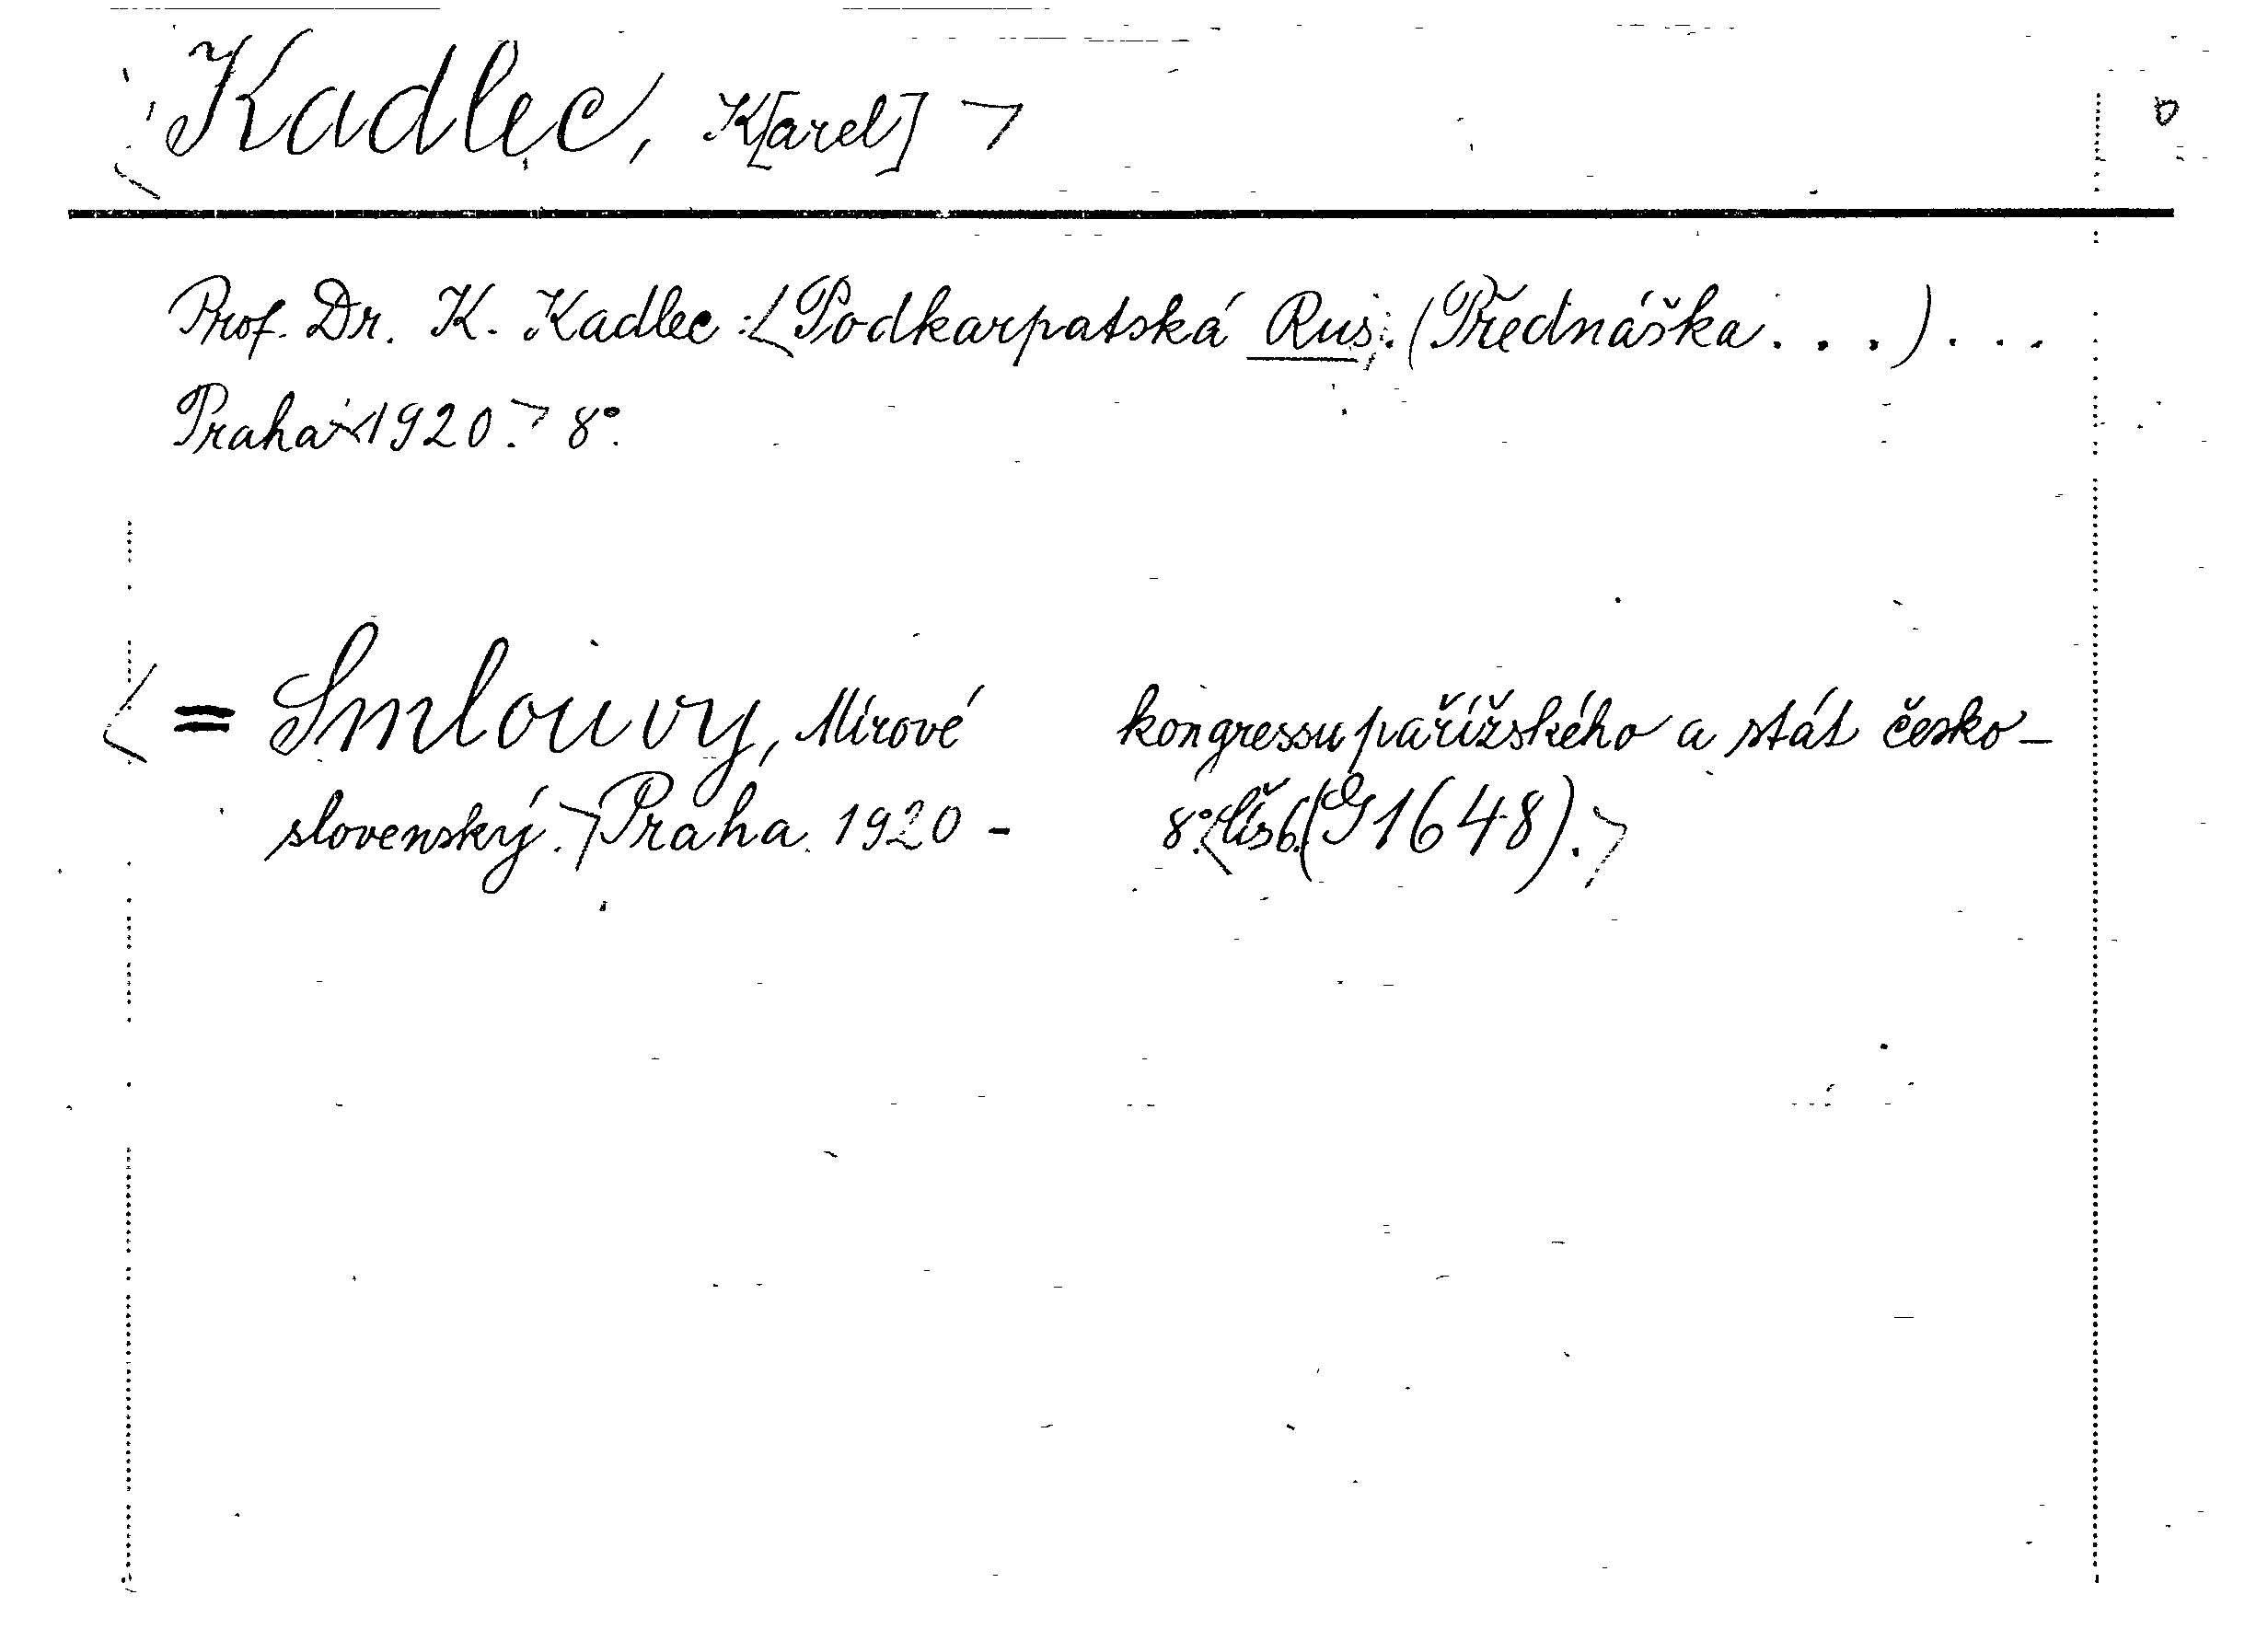 Kadlec, K[arel]
Prof. Dr. K. Kadlec: Podkarpatská Rus. (Přednáška...)...
Praha 1920. 8°.
= Smlouvy, Mírové kongressu pařížského a stát česko-
slovenský. Praha 1920 - 8°. čís 6. (G 1648).